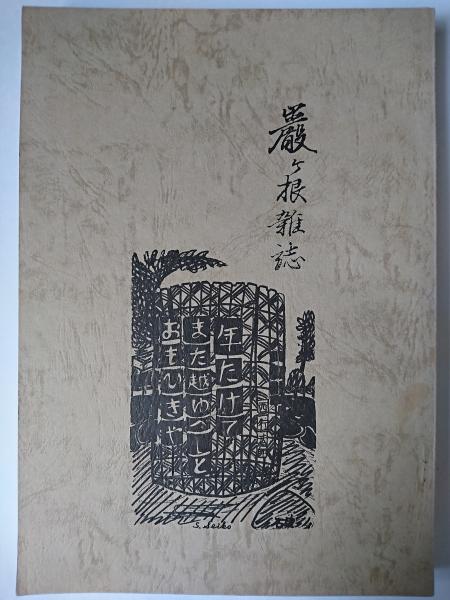 巖ヶ根雑誌
西行
年たけて
また越ゆべしと
おもひきや
S. Seiko